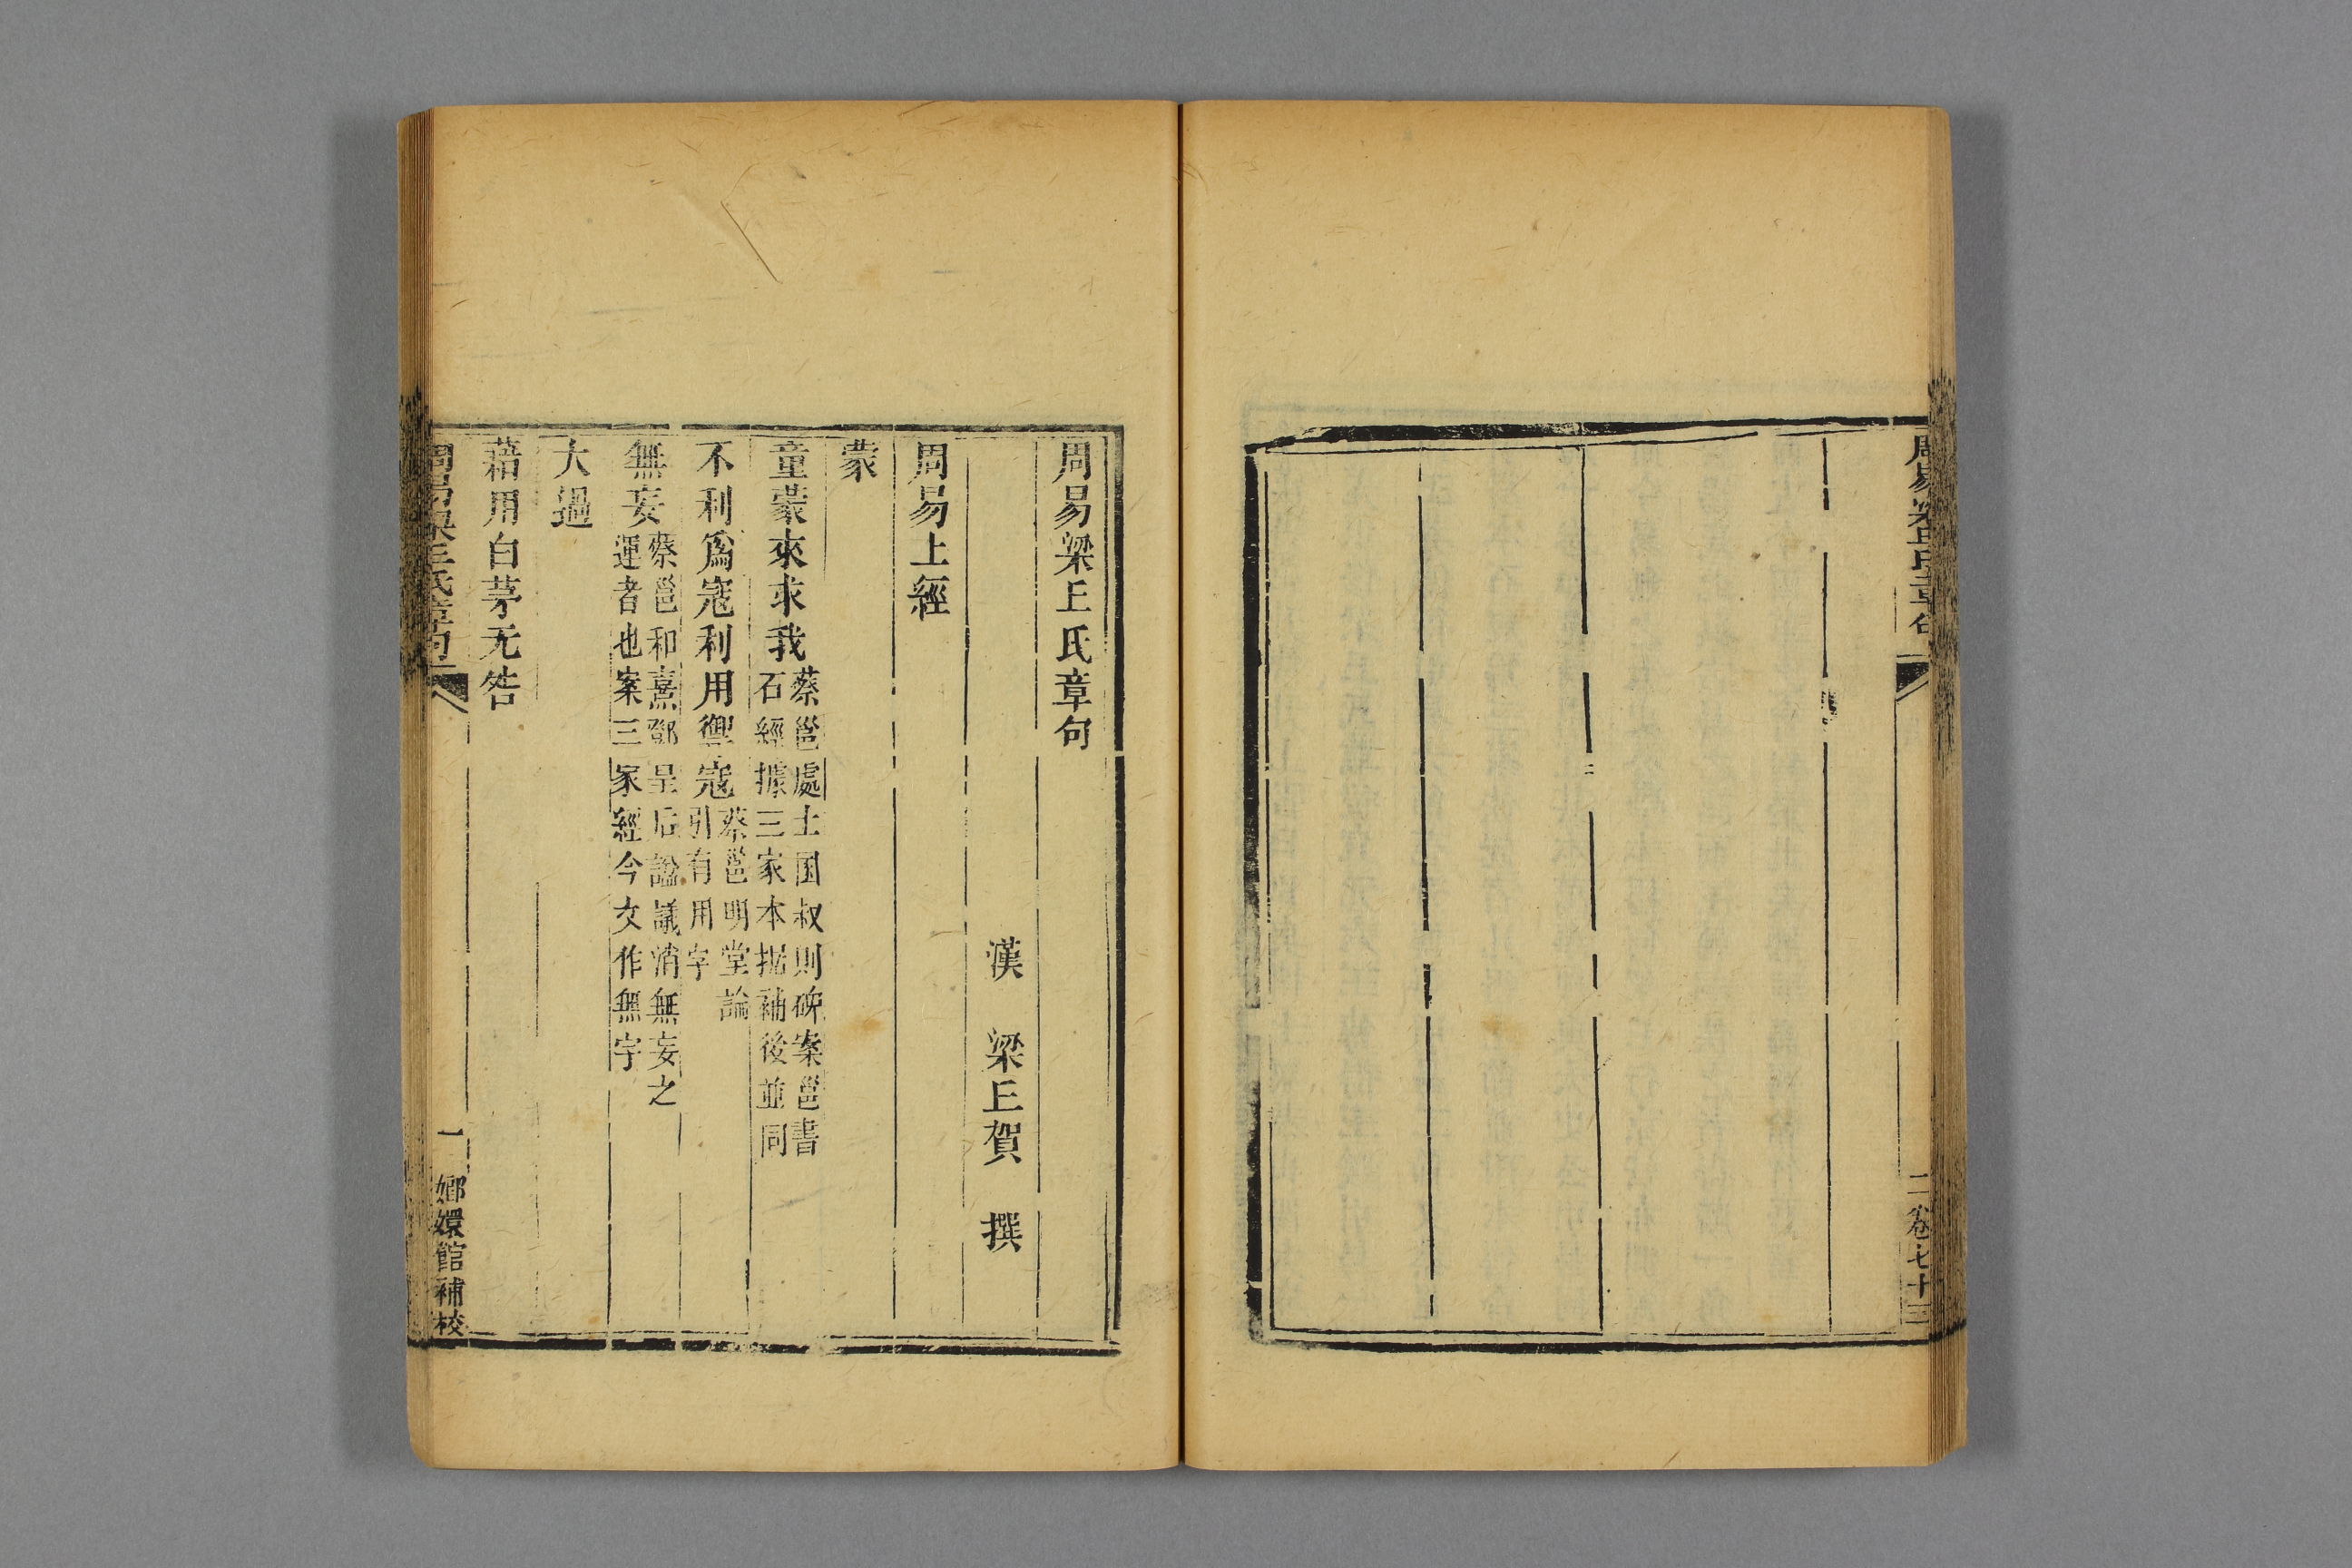 周易梁丘氏章句
二
卷七十三
周易梁丘氏章句
漢 梁丘賀 撰
周易上經
蒙
童蒙來求我
蔡邕處士国叔則碑案邕書
石經據三家本据補後並同
不利爲寇利用禦寇
蔡邕明堂論
引有用字
無妄
蔡邕和熹鄧皇后諡議消無妄之
運者也案三家經今文作無字
大過
藉用白茅无咎
周易梁丘氏章句
一
嫏嬛館補校